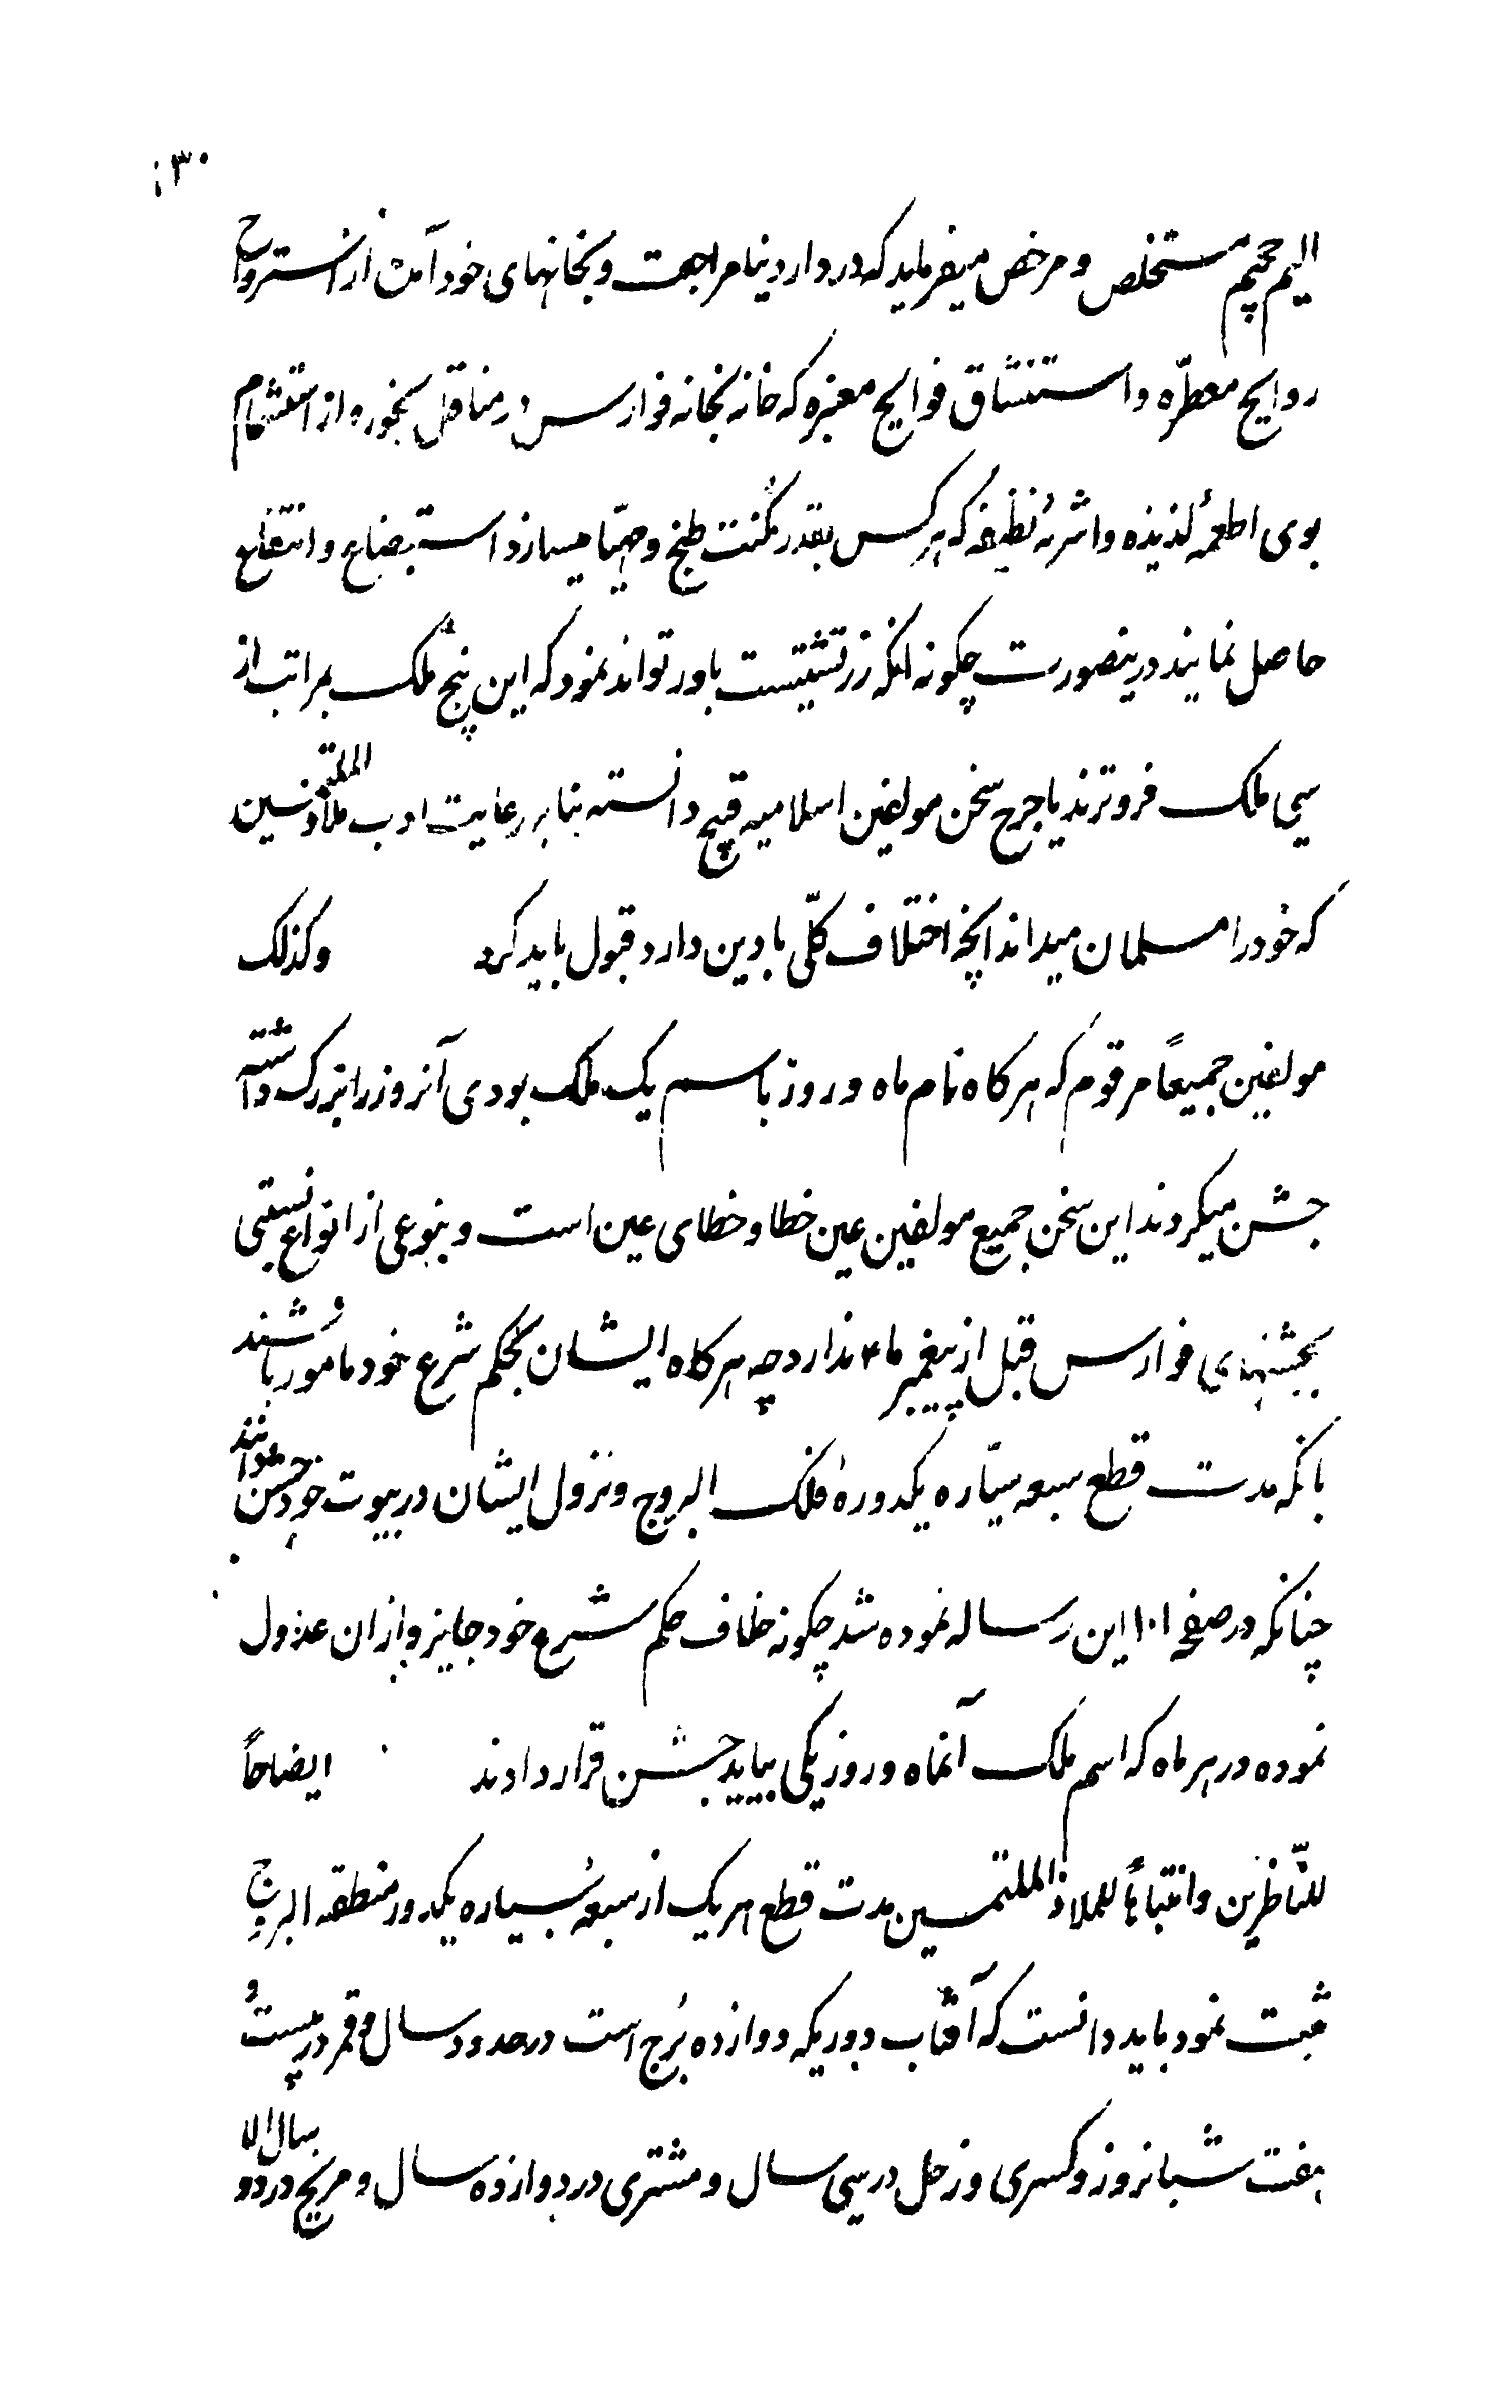 ۱۳۰
الیم جحیم مستخلص و مرخص میفرماید که در دار دنیا مراجعت و بخانهای خود آمده از استرواح
روایح معطّره و استنشاق فوایح معنبره که خانه بخانه فوارس در مناقل بخور و از استشمام
بوی اطعمهٔ لذیذه و اشربهٔ نظیفه که هر کس بقدر مُکنت طبخ و مهیّا میسازد استبضاع و انتفاع
حاصل نمایند درینصورت چکونه انکه زرتشتیست باور تواند نمود که این پنج ملک بمراتب از
سی ملک فروترند یا جرح سخن مولفین اسلامیه قبیح دانسته بنابر رعایت ادب ملاذ الملتمسین
که خود را مسلمان میداند انچه اختلاف کلّی با دین دارد قبول باید کرد وکذلک
مولفین جمیعاً مرقوم که هر کاه نام ماه و روز باسم یک ملک بودی آنروز را بزرک داشته
جشن میکردند این سخن جمیع مولفین عین خطا و خطای عین است و بنوعی از انواع نسبتی
بجشنهای فوارس قبل از پیغمبر ما ندارد چه هر کاه ایشان بحکم شرع خود مامور باشند و
بانکه مدت قطع سبعه سیّاره یکدورهٔ فلک البروج و نزول ایشان در بیوت خود جشن توانند
چنانکه در صفحه ۱۰۱ این رساله نموده شد چکونه خلاف حکم شرع خود جایز و ازان عدول
نموده در هر ماه که اسم ملک آنماه و روز یکی بیاید جشن قرار دادند ایضاحاً
للنّاظرین و انتباهاً للملاذ الملتمسین مدت قطع هر یک از سبعهٔ سیاره یکدور منطقه البروج
ثبت نمود باید دانست که آفتاب دوریکه دوازده بُرج است در حدود سال و قمر در بیست و
هفت شبانروز و کسری و زحل در سی سال و مشتری در دوازده سال و مریخ در دو سال الا